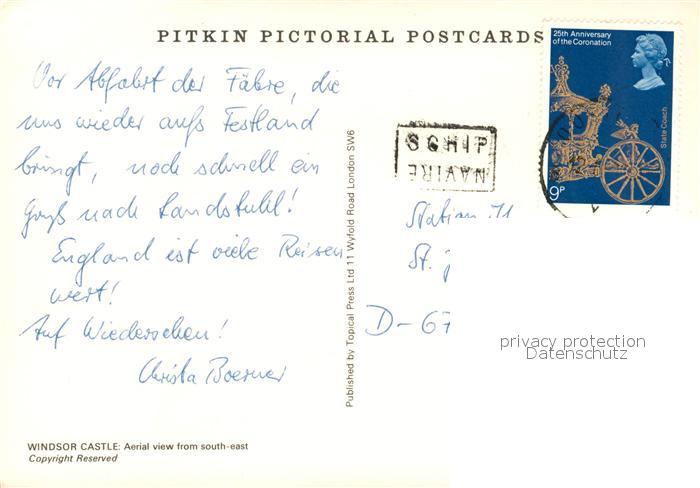 PITKIN PICTORIAL POSTCARDS
25th Anniversary
of the Coronation
State Coach
9P
SCHIP
NAVIRE
Vor Abfahrt der Fähre, die
uns wieder aufs Festland
bringt, noch schnell ein
Gruß nach Landstuhl!
England ist viele Reisen
wert!
Auf Wiedersehen!
Christa Boerner
Published by Topical Press Ltd 11 Wyfold Road London SW6
Station 11
St. j
D-67
privacy protection
Datenschutz
WINDSOR CASTLE: Aerial view from south-east
Copyright Reserved